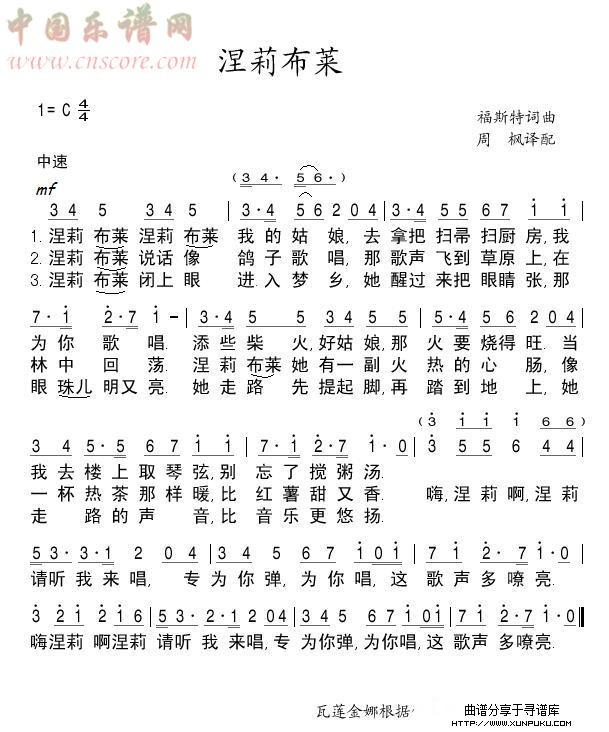 中国乐谱网
www.cnscore.com
涅莉布莱
1= C 4/4
福斯特词曲
周 枫译配
中速
mf
( 3 4 · 5 6 · )
3 4 5 3 4 5 | 3 · 4 5 6 2 0 4 | 3 · 4 5 5 6 7 i i |
1. 涅莉 布莱 涅莉 布莱 我 的 姑 娘, 去 拿把 扫帚 扫厨 房, 我
2. 涅莉 布莱 说话 像 鸽 子 歌 唱, 那 歌声 飞到 草原 上, 在
3. 涅莉 布莱 闭上 眼 进. 入 梦 乡, 她 醒过 来把 眼睛 张, 那
7 · i 2 · 7 i - | 3 · 4 5 3 · 4 5 | 3 · 4 5 5 6 2 0 4 |
为 你 歌 唱. 添 些 柴 火, 好 姑 娘, 那 火 要 烧得 旺. 当
林 中 回 荡. 涅 莉 布莱 她 有 一 副 火 热 的 心 肠, 像
眼 珠儿 明又 亮. 她 走 路 先 提起 脚, 再 踏 到 地 上, 她
( 3 i i i 6 6 )
3 4 5 · 5 6 7 i i | 7 · i 2 · 7 i · 0 | 3 5 5 6 4 4 |
我 去 楼 上 取 琴 弦, 别 忘 了 搅 粥 汤.
一 杯 热 茶 那 样 暖, 比 红 薯 甜 又 香. 嗨, 涅 莉 啊, 涅 莉
走 路 的 声 音, 比 音 乐 更 悠 扬.
5 3 · 3 · 1 2 0 4 | 3 4 5 6 7 i 0 i | 7 i 2 · 7 i · 0 |
请 听 我 来 唱, 专 为 你 弹, 为 你 唱, 这 歌 声 多 嘹 亮.
3 2 i 2 i 6 | 5 3 · 3 · 1 2 0 4 | 3 4 5 6 7 i 0 i | 7 i 2 · 7 i · 0 ‖
嗨 涅莉 啊涅莉 请 听 我 来唱, 专 为你弹, 为你唱, 这 歌声 多嘹亮.
瓦莲金娜根据
曲谱分享于寻谱库
HTTP://WWW.XUNPUKU.COM